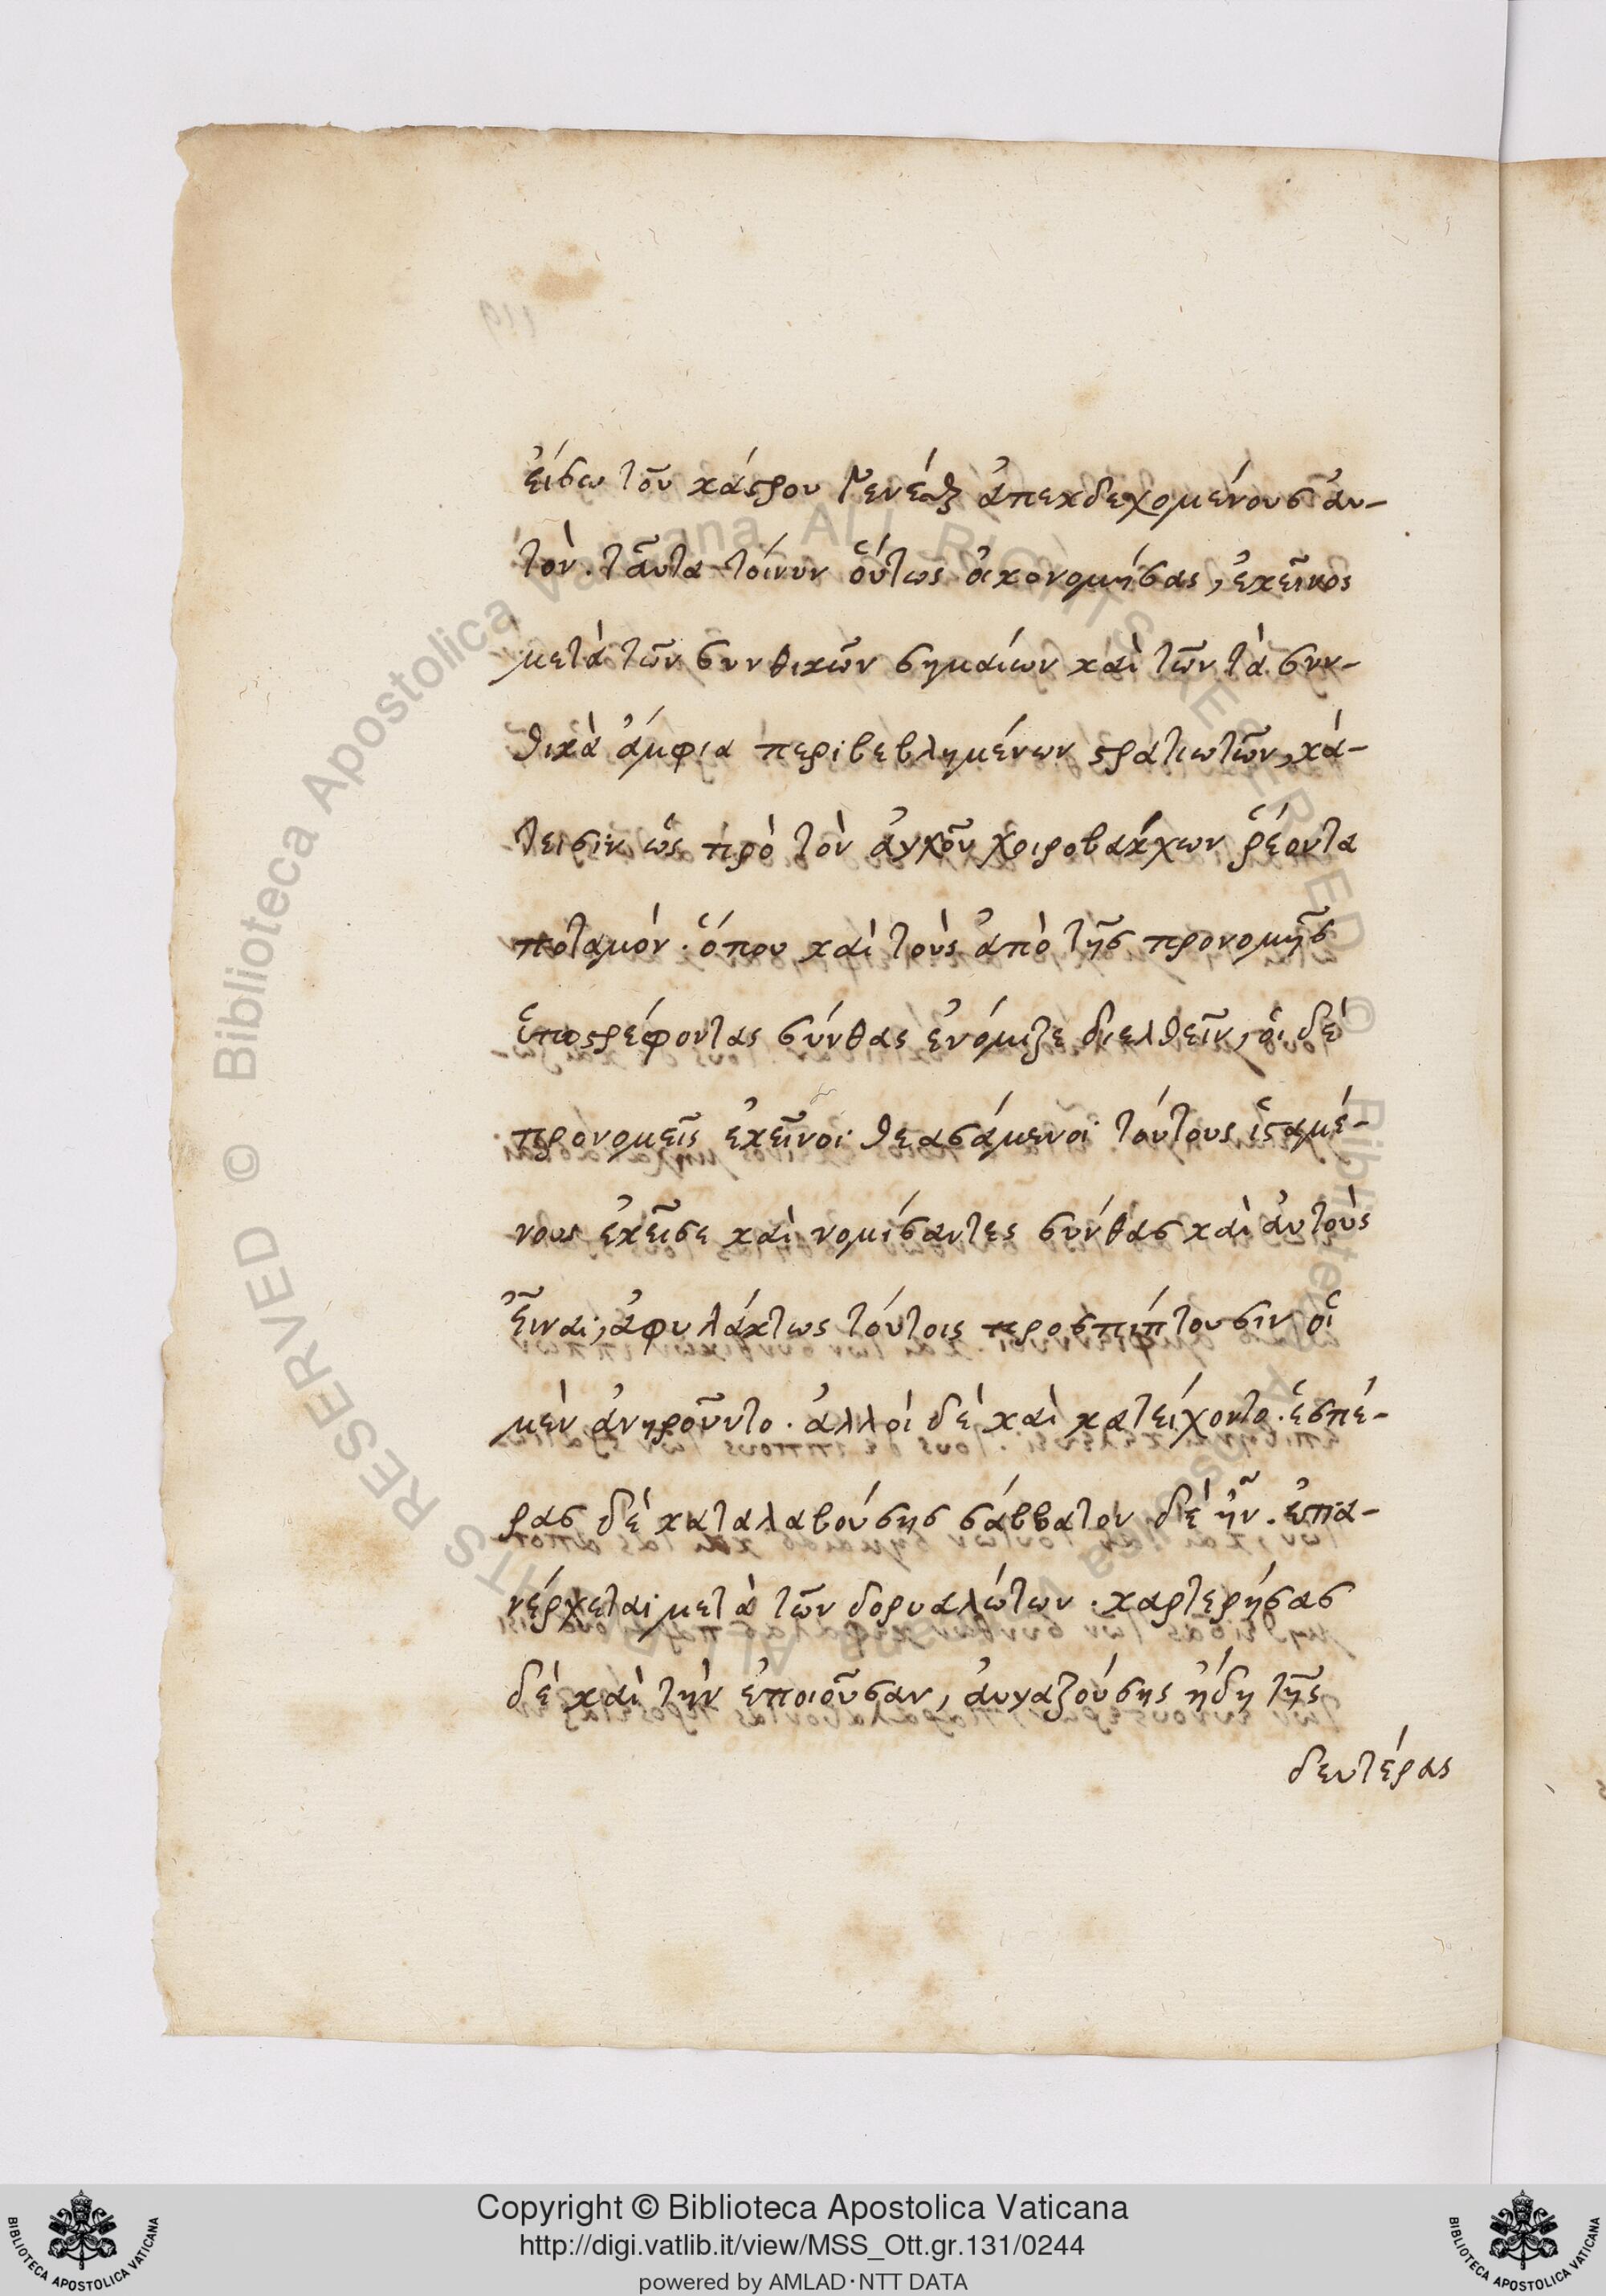 εἴσω τοῦ κάστρου γενέσθαι ἀπεκδεχομένους ἀυ-
τόν. ταῦτα τοίνυν οὕτως οἰκονομήσας, ἐκεῖνος
μετὰ τῶν σκυθικῶν σημαίων καὶ τῶν τὰ σκυ-
θικὰ ἄμφια περιβεβλημένων στρατιωτῶν, κά-
τεισιν ὡς πρὸ τὸν ἀγχοῦ χοιροβάκχων ῥέοντα
ποταμόν. ὅπου καὶ τοὺς ἀπὸ τῆς προνομῆς
ὑποστρέφοντας σκύθας ἐνόμιζε διελθεῖν, οἱ δὲ
προνομεῖς ἐκεῖνοι θεασάμενοι τούτους ἱσταμέ-
νους ἐκεῖσε καὶ νομίσαντες σκύθας καὶ ἀυτοὺς
εἶναι, ἀφυλάκτως τούτοις προσπίπτουσιν οἱ
μὲν ἀνῃροῦντο. ἀλλοι δὲ καὶ κατείχοντο. ἑσπέ-
ρας δὲ καταλαβούσης σάββατον δὲ ἦν. ἐπα-
νέρχεται μετὰ τῶν δορυαλώτων. καρτερήσας
δὲ καὶ τὴν ἐπιοῦσαν, ἀυγαζούσης ἤδη τῆς
δευτέρας
Copyright © Biblioteca Apostolica Vaticana
http://digi.vatlib.it/view/MSS_Ott.gr.131/0244
powered by AMLAD·NTT DATA